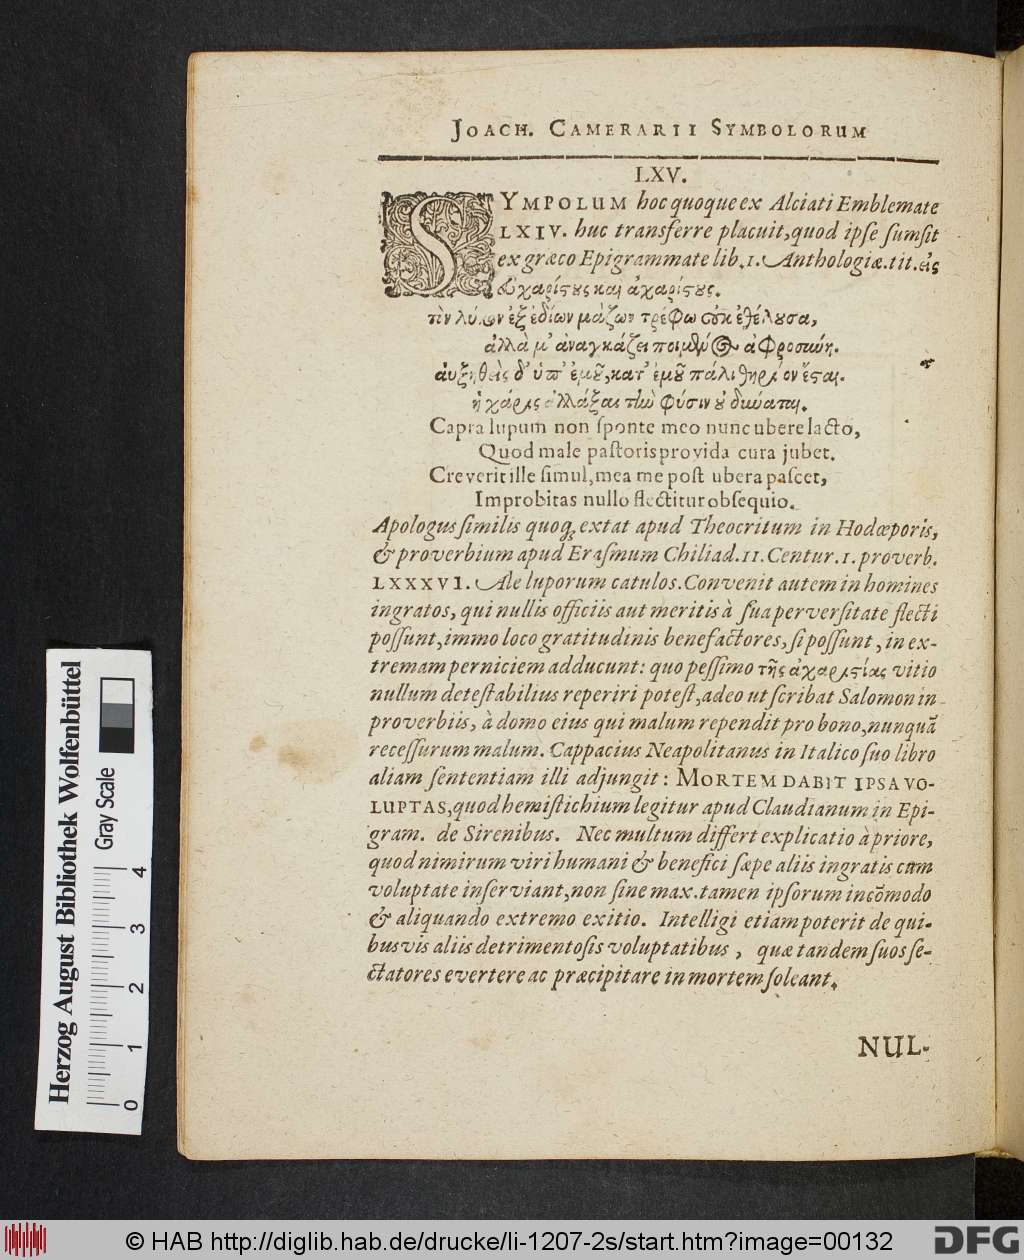 JOACH. CAMERARII SYMBOLORUM
LXV.
SYMPOLUM hoc quoque ex Alciati Emblemate
LXIV. huc transferre placuit, quod ipse sumsit
ex græco Epigrammate lib. 1. Anthologiæ. tit. εἰς
ἀχαρίστους.
τὸν λύκον ἐξ ἰδίων μάζων τρέφω οὐκ ἐθέλουσα,
ἀλλὰ μ' ἀναγκάζει ποιμένος ἀφροσύνη.
αὐξηθεὶς δ' ὑπ' ἐμοῦ, κατ' ἐμοῦ πάλι θηρίον ἔσται.
ἡ χάρις ἀλλάξαι τὴν φύσιν οὐ δύναται.
Capra lupum non sponte meo nunc ubere lacto,
Quod male pastoris provida cura jubet.
Creverit ille simul, mea me post ubera pascet,
Improbitas nullo flectitur obsequio.
Apologus similis quoq; extat apud Theocritum in Hodœporis,
& proverbium apud Erasmum Chiliad. 11. Centur. 1. proverb.
LXXXVI. Ale luporum catulos. Convenit autem in homines
ingratos, qui nullis officiis aut meritis à sua perversitate flecti
possunt, immo loco gratitudinis benefactores, si possunt, in ex-
tremam perniciem adducunt: quo pessimo τῆς ἀχαριστίας vitio
nullum detestabilius reperiri potest, adeo ut scribat Salomon in
proverbiis, à domo eius qui malum rependit pro bono, nunquã
recessurum malum. Cappacius Neapolitanus in Italico suo libro
aliam sententiam illi adjungit: MORTEM DABIT IPSA VO-
LUPTAS, quod hemistichium legitur apud Claudianum in Epi-
gram. de Sirenibus. Nec multum differt explicatio à priore,
quod nimirum viri humani & benefici sæpe aliis ingratis cum
voluptate inserviant, non sine max. tamen ipsorum incõmodo
& aliquando extremo exitio. Intelligi etiam poterit de qui-
busvis aliis detrimentosis voluptatibus, quæ tandem suos se-
ctatores evertere ac præcipitare in mortem soleant.
NUL-
Herzog August Bibliothek Wolfenbüttel
Gray Scale
0 1 2 3 4
© HAB http://diglib.hab.de/drucke/li-1207-2s/start.htm?image=00132
DFG